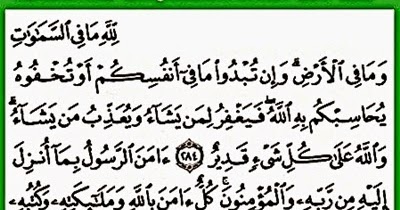 لِّلَّهِ مَا فِي السَّمَاوَاتِ
وَمَا فِي الْأَرْضِ ۗ وَإِن تُبْدُوا مَا فِي أَنفُسِكُمْ أَوْ تُخْفُوهُ
يُحَاسِبْكُم بِهِ اللَّهُ ۖ فَيَغْفِرُ لِمَن يَشَاءُ وَيُعَذِّبُ مَن يَشَاءُ ۗ
وَاللَّهُ عَلَىٰ كُلِّ شَيْءٍ قَدِيرٌ ﴿٢٨٤﴾ ءَامَنَ الرَّسُولُ بِمَا أُنزِلَ
إِلَيْهِ مِن رَّبِّهِ وَالْمُؤْمِنُونَ ۚ كُلٌّ ءَامَنَ بِاللَّهِ وَمَلَٰئِكَتِهِ وَكُتُبِهِ